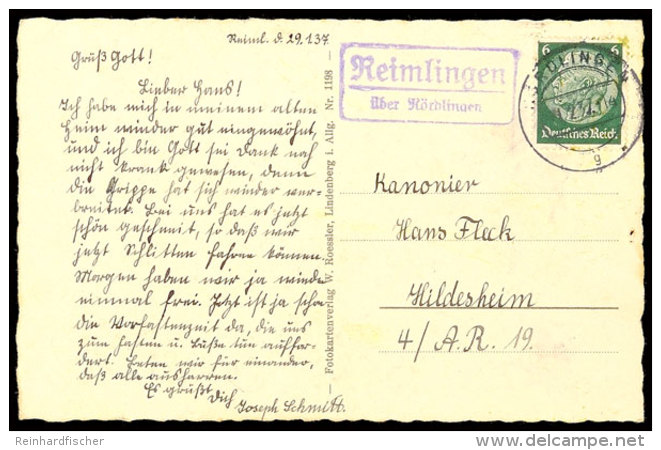 Reiml. d. 29.1.37
Grüß Gott!
Lieber Hans!
Ich habe mich in meinem alten
Heim wieder gut eingewöhnt,
und ich bin Gott sei Dank noch
nicht krank gewesen, denn
die Grippe hat sich wieder ver-
breitet. Bei uns hat es jetzt
schön geschneit, so daß wir
jetzt Schlitten fahren können.
Morgen haben wir ja wieder
einmal frei. Jetzt ist ja schon
die Vorfastenzeit da, die uns
zum fasten u. Buße tun auffor-
dert. Beten wir für einander,
daß alle ausharren.
Es grüßt
Dich
Joseph Schmitt.
Fotokartenverlag W. Roessler, Lindenberg i. Allg. Nr. 1198
Reimlingen
über Nördlingen
6 6
Deutsches Reich
NÖRDLINGEN
g
Kanonier
Hans Fleck
Hildesheim
4/ A.R. 19.
Reinhardfischer
www.delcampe.net